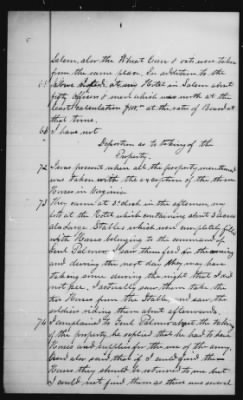 Salem, also the Wheat Corn & oats were taken
from the same place. In addition to the
above I fed at my Hotel in Salem about
fifty officers & men which was worth at the
least calculation $ at the rate of Board at
that time.
I have not
Deposition as to taking of the
Property.
72 I was present when all the property mentioned
was taken with the exception of the three
Horses in Virginia
73 They came at 3 o'clock in the afternoon, my
lots at the Hotel which containing about 3 acres
also large Stables which were completely filled
with Horses belonging to the command of
Genl Palmer. I saw them feed the evening
and during the next day they may have
taken some during the night that I did
not see, I actually saw them take the
two Horses from the Stable, and saw the
soldiers riding them about afterwards.
74 I complained to Genl Palmer about the taking
of this property, he replied that he had to have
Horses and supplies for the use of the army.
And also said that if I could find the
Horses they should be returned to me but
I could not find them as there was several